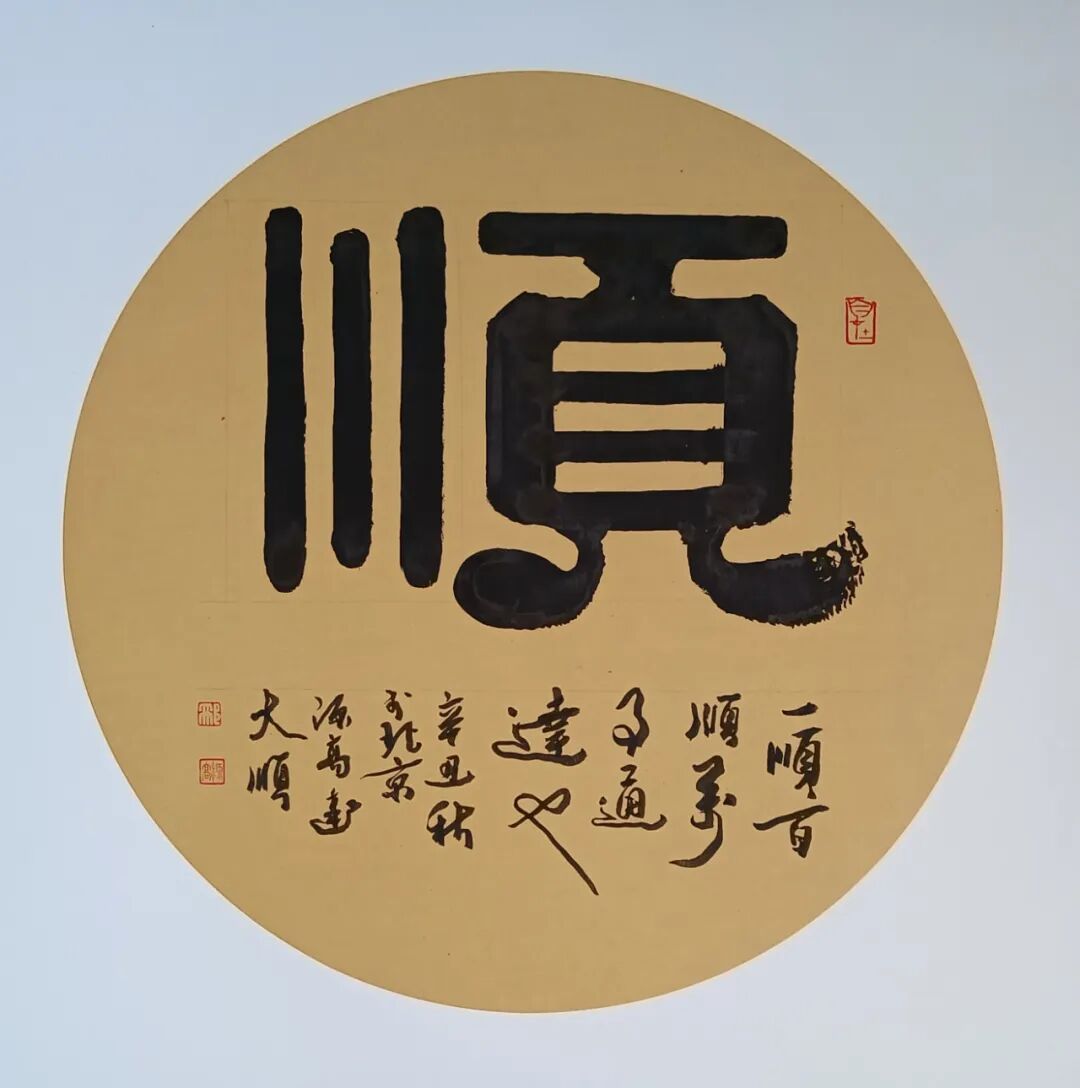 順
一順百
順萬
事通
達也
辛丑秋
於北京
源高書
大順